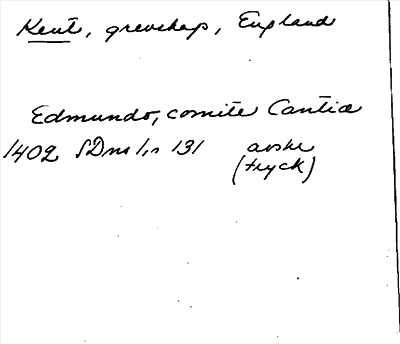 Kent, grevskap, England
Edmundo, comite Cantiæ
1402 SDns 1,s 131 avskr
(tryck)